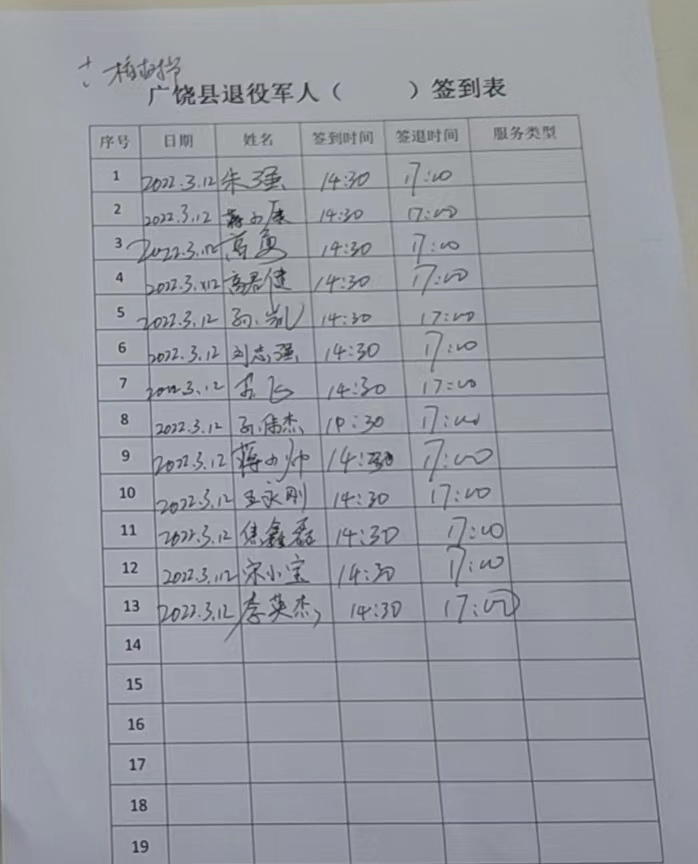 广饶县退役军人（ ）签到表
序号 日期 姓名 签到时间 签退时间 服务类型
1 2022.3.12 朱强 14:30 17:00
2 2022.3.12 蒋小康 14:30 17:00
3 2022.3.12 高勇 14:30 17:00
4 2022.3.12 高君健 14:30 17:00
5 2022.3.12 孙凯 14:30 17:00
6 2022.3.12 刘志强 14:30 17:00
7 2022.3.12 飞 14:30 17:00
8 2022.3.12 孙伟杰 14:30 17:00
9 2022.3.12 蒋小帅 14:30 17:00
10 2022.3.12 王永刚 14:30 17:00
11 2022.3.12 焦鑫磊 14:30 17:00
12 2022.3.12 宋小宝 14:30 17:00
13 2022.3.12 李英杰 14:30 17:00
14
15
16
17
18
19